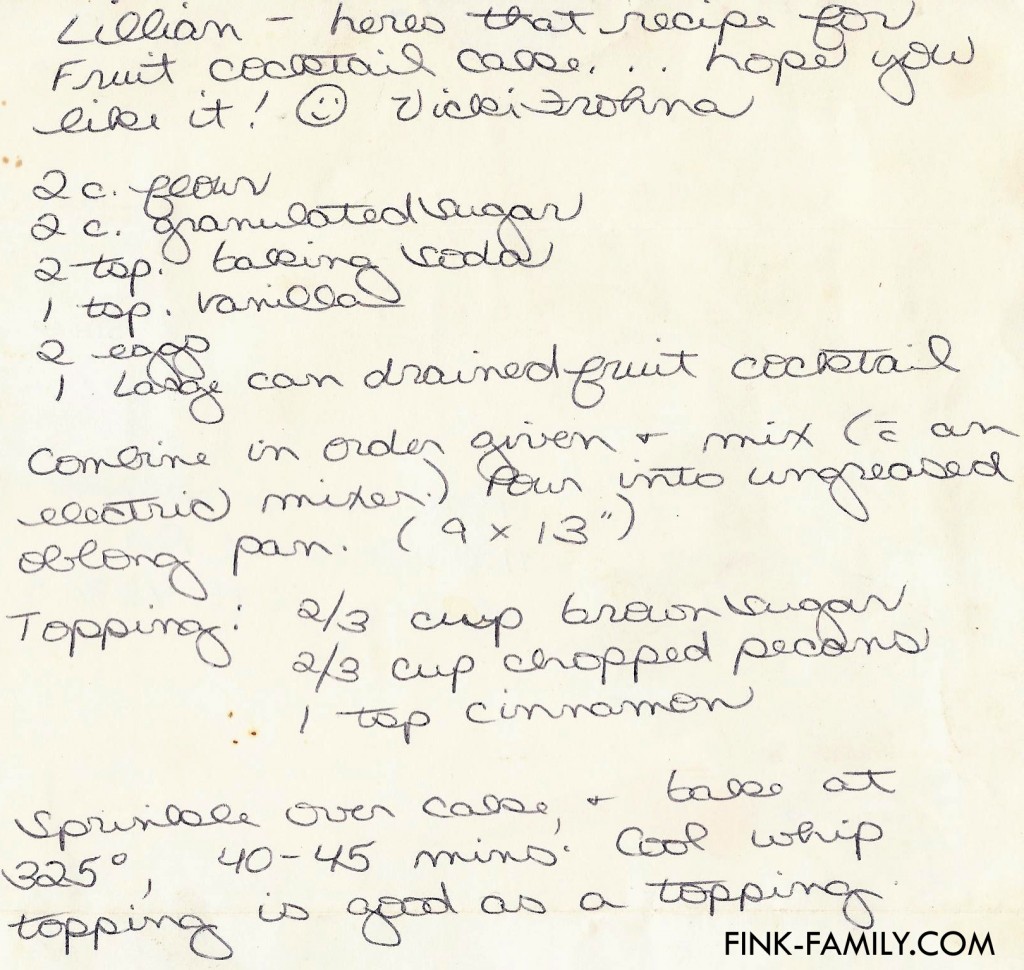 Lillian - heres that recipe for
Fruit cocktail cake... hope you
like it! ☺ Vicki Frohna
2 c. flour
2 c. granulated sugar
2 tsp. baking soda
1 tsp. vanilla
2 eggs
1 Large can drained fruit cocktail
Combine in order given + mix (c̄ an
electric mixer.) Pour into ungreased
oblong pan. (9 x 13")
Topping: 2/3 cup brown sugar
2/3 cup chopped pecans
1 tsp cinnamon
Sprinkle over cake, + bake at
325°, 40-45 mins. Cool whip
topping is good as a topping.
FINK-FAMILY.COM